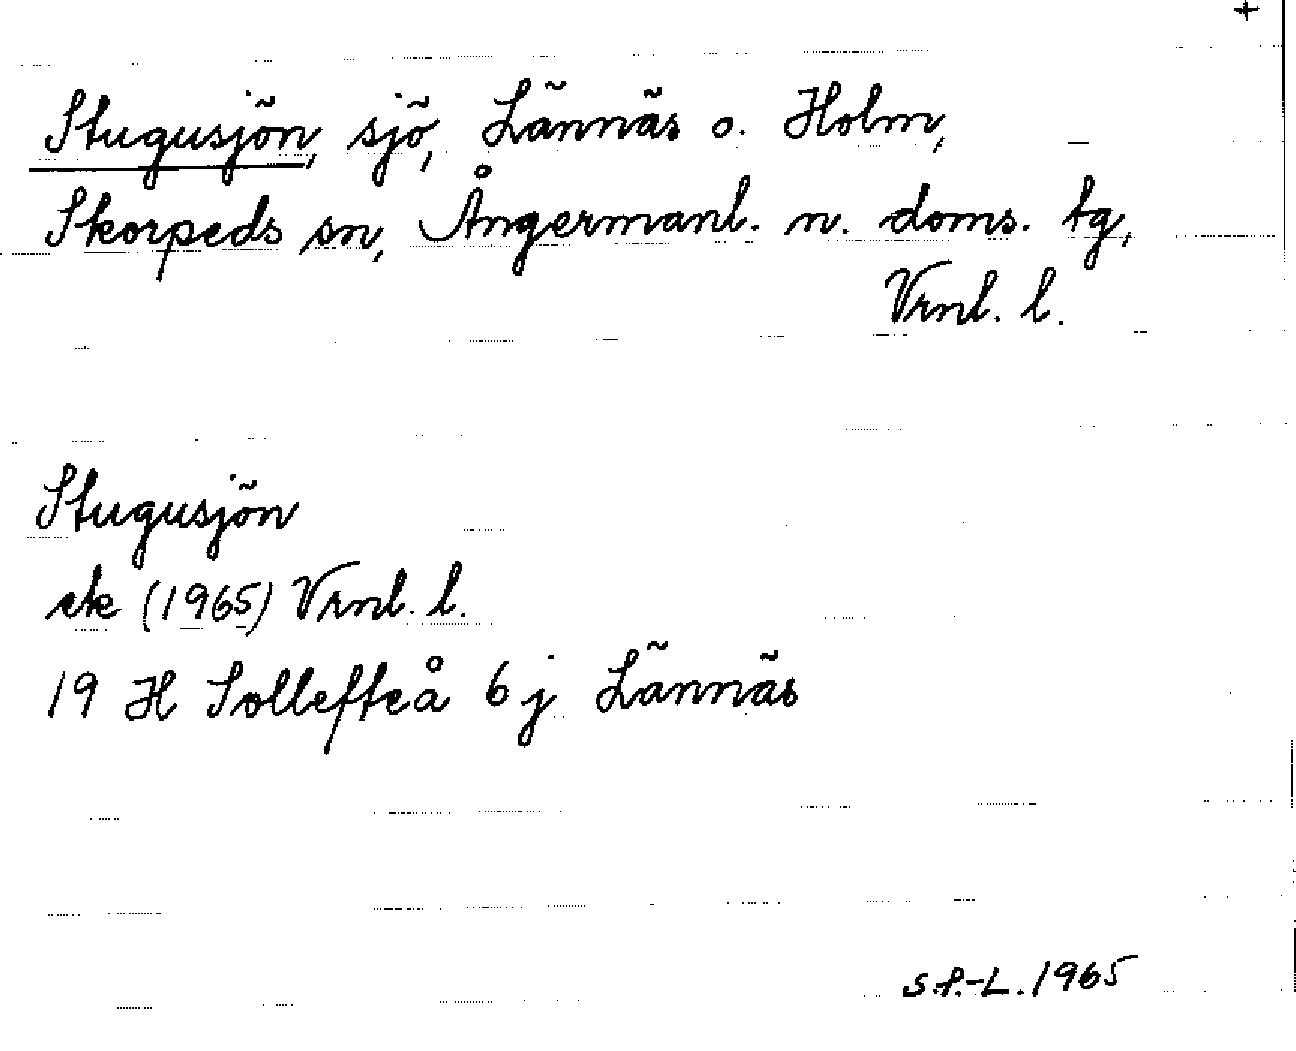 +
Stugusjön, sjö, Lännäs o. Holm,
Skorpeds sn, Ångermanl. n. doms. tg,
Vrnl. l.
Stugusjön
ek (1965) Vrnl. l.
19 H Sollefteå 6 j Lännäs
S.P.-L. 1965